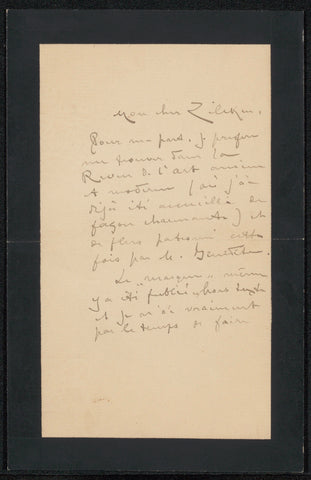 Mon cher Zilcken.
Pour ma part. je préfère
me trouver dans la
Revue de l'art ancien
et moderne (où j'ai
déjà été accueilli de
façon charmante) et
de plus patronné cette
fois par le. Bénédite.
Le "masque" même
y a été publié, hors texte
et je n'ai vraiment
pas le temps de faire